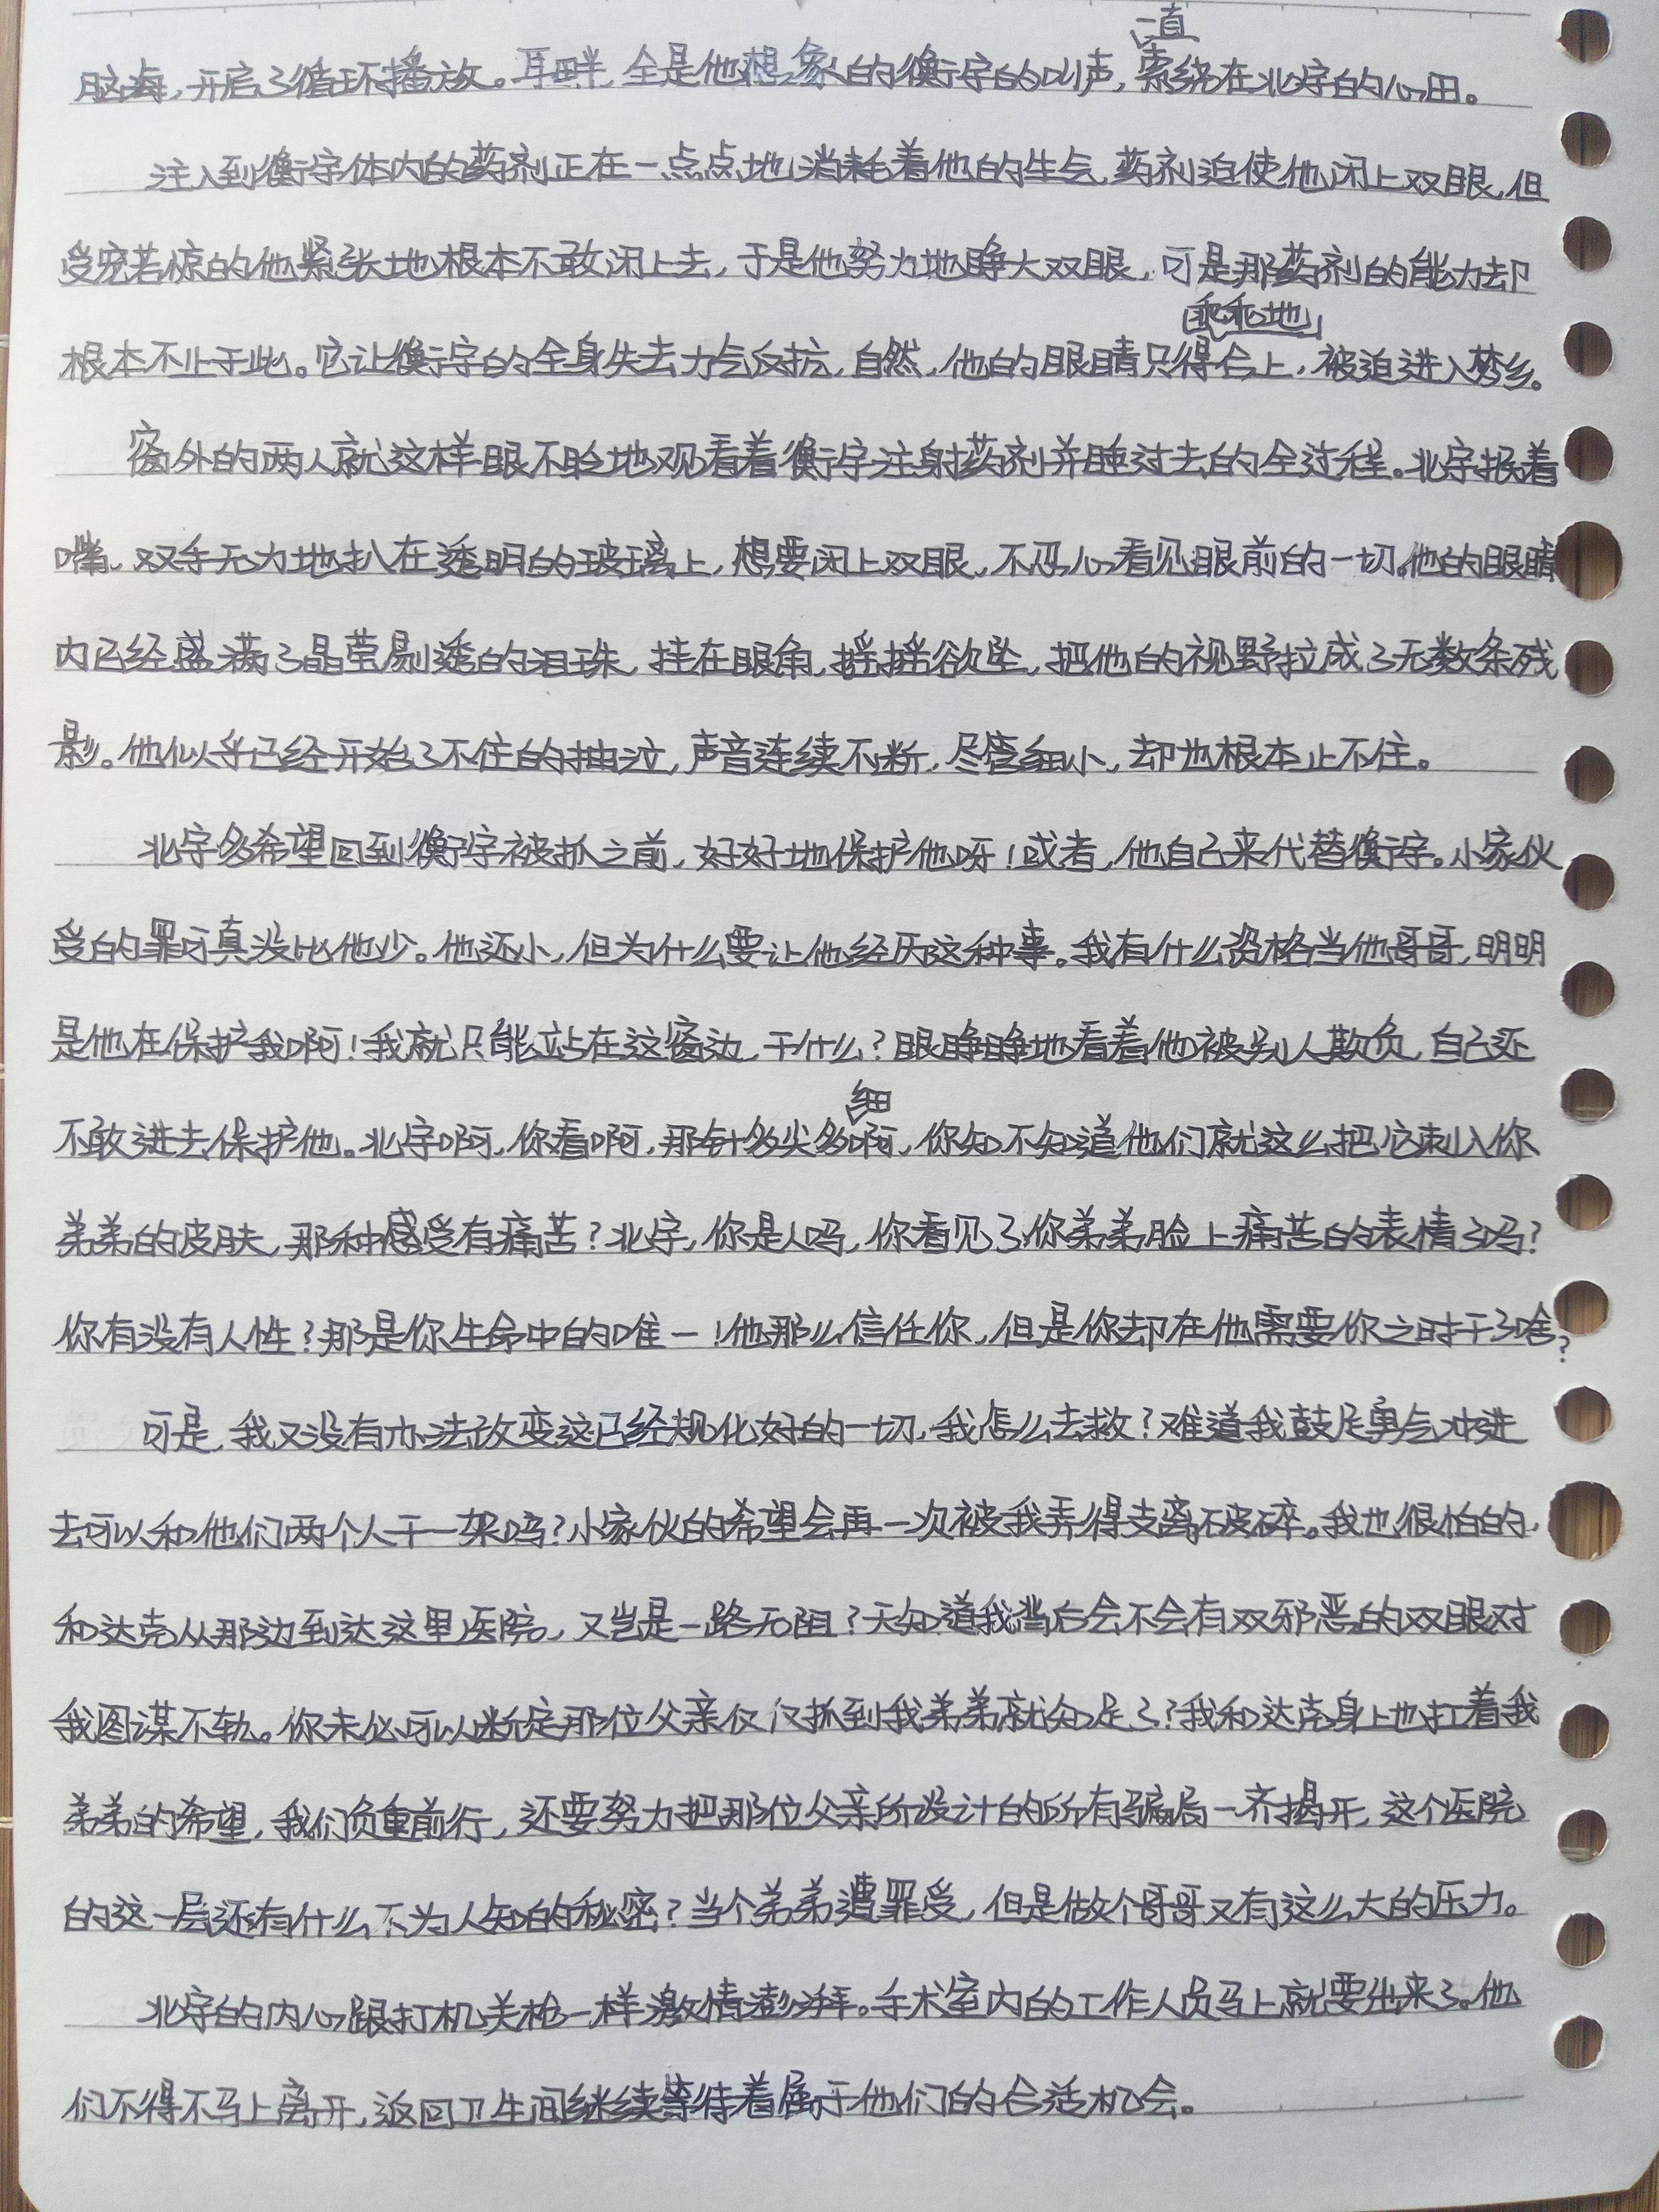 脑海，开启了循环播放。耳畔，全是他想象的衡宇的叫声，一直萦绕在北宇的心田。
注入到衡宇体内的药剂正在一点点地消耗着他的生气，药剂迫使他闭上双眼，但
受宠若惊的他紧张地根本不敢闭上去，于是他努力地睁大双眼，可是那药剂的能力却
根本不止于此。它让衡宇的全身失去力气反抗，自然，他的眼睛只得乖乖地合上，被迫进入梦乡。
窗外的两人就这样眼不眨地观看着衡宇注射药剂并睡过去的全过程。北宇抿着
嘴，双手无力地扒在透明的玻璃上，想要闭上双眼，不忍心看见眼前的一切。他的眼睛
内已经盛满了晶莹剔透的泪珠，挂在眼角，摇摇欲坠，把他的视野拉成了无数条残
影。他似乎已经开始了不住的抽泣，声音连续不断，尽管细小，却也根本止不住。
北宇多希望回到衡宇被抓之前，好好地保护他呀！或者，他自己来代替衡宇。小家伙
受的罪可真没比他少。他还小，但为什么要让他经历这种事。我有什么资格当他哥哥，明明
是他在保护我啊！我就只能站在这窗边，干什么？眼睁睁地看着他被别人欺负，自己还
不敢进去保护他。北宇啊，你看啊，那针多尖多细啊，你知不知道他们就这么把它刺入你
弟弟的皮肤，那种感受有痛苦？北宇，你是人吗，你看见了你弟弟脸上痛苦的表情了吗？
你有没有人性？那是你生命中的唯一！他那么信任你，但是你却在他需要你之时干了啥？
可是，我又没有办法改变这已经规化好的一切，我怎么去救？难道我鼓足勇气冲进
去可以和他们两个人干一架吗？小家伙的希望会再一次被我弄得支离破碎。我也很怕的，
和达克从那边到达这里医院，又岂是一路无阻？天知道我背后会不会有双邪恶的双眼对
我图谋不轨。你未必可以断定那位父亲仅仅抓到我弟弟就知足了？我和达克身上也扛着我
弟弟的希望，我们负重前行，还要努力把那位父亲所设计的所有骗局一齐揭开，这个医院
的这一层还有什么不为人知的秘密？当个弟弟遭罪受，但是做个哥哥又有这么大的压力。
北宇的内心跟打机关枪一样激情澎湃。手术室内的工作人员马上就要出来了。他
们不得不马上离开，返回卫生间继续等待着属于他们的合适机会。